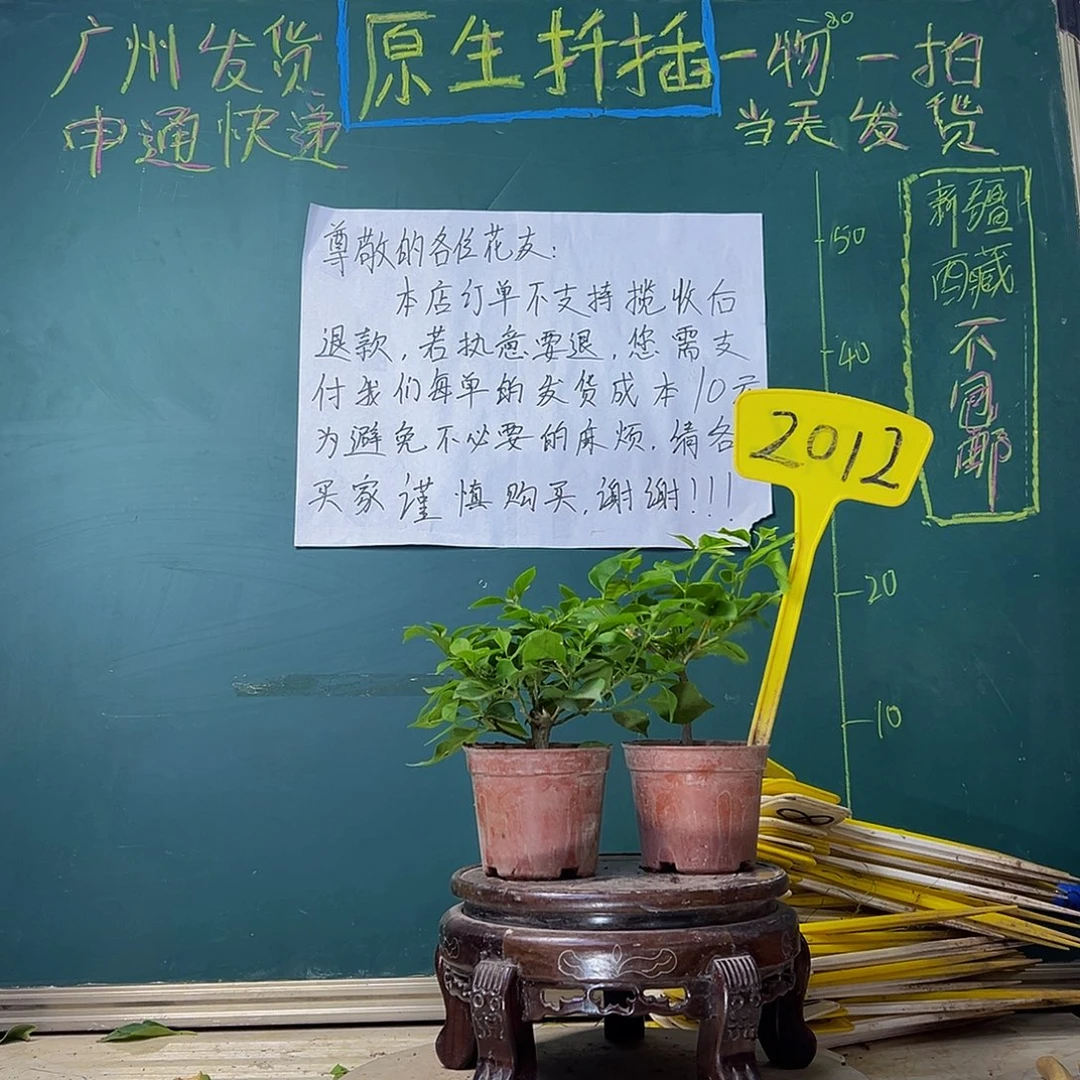 广州发货
申通快递
原生扦插
一物一拍
当天发货
尊敬的各位花友:
本店订单不支持揽收后
退款,若执意要退,您需支
付我们每单的发货成本10元
为避免不必要的麻烦.请各
买家谨慎购买,谢谢!!!
新疆
西藏
不包邮
80
50
40
20
10
2012
8